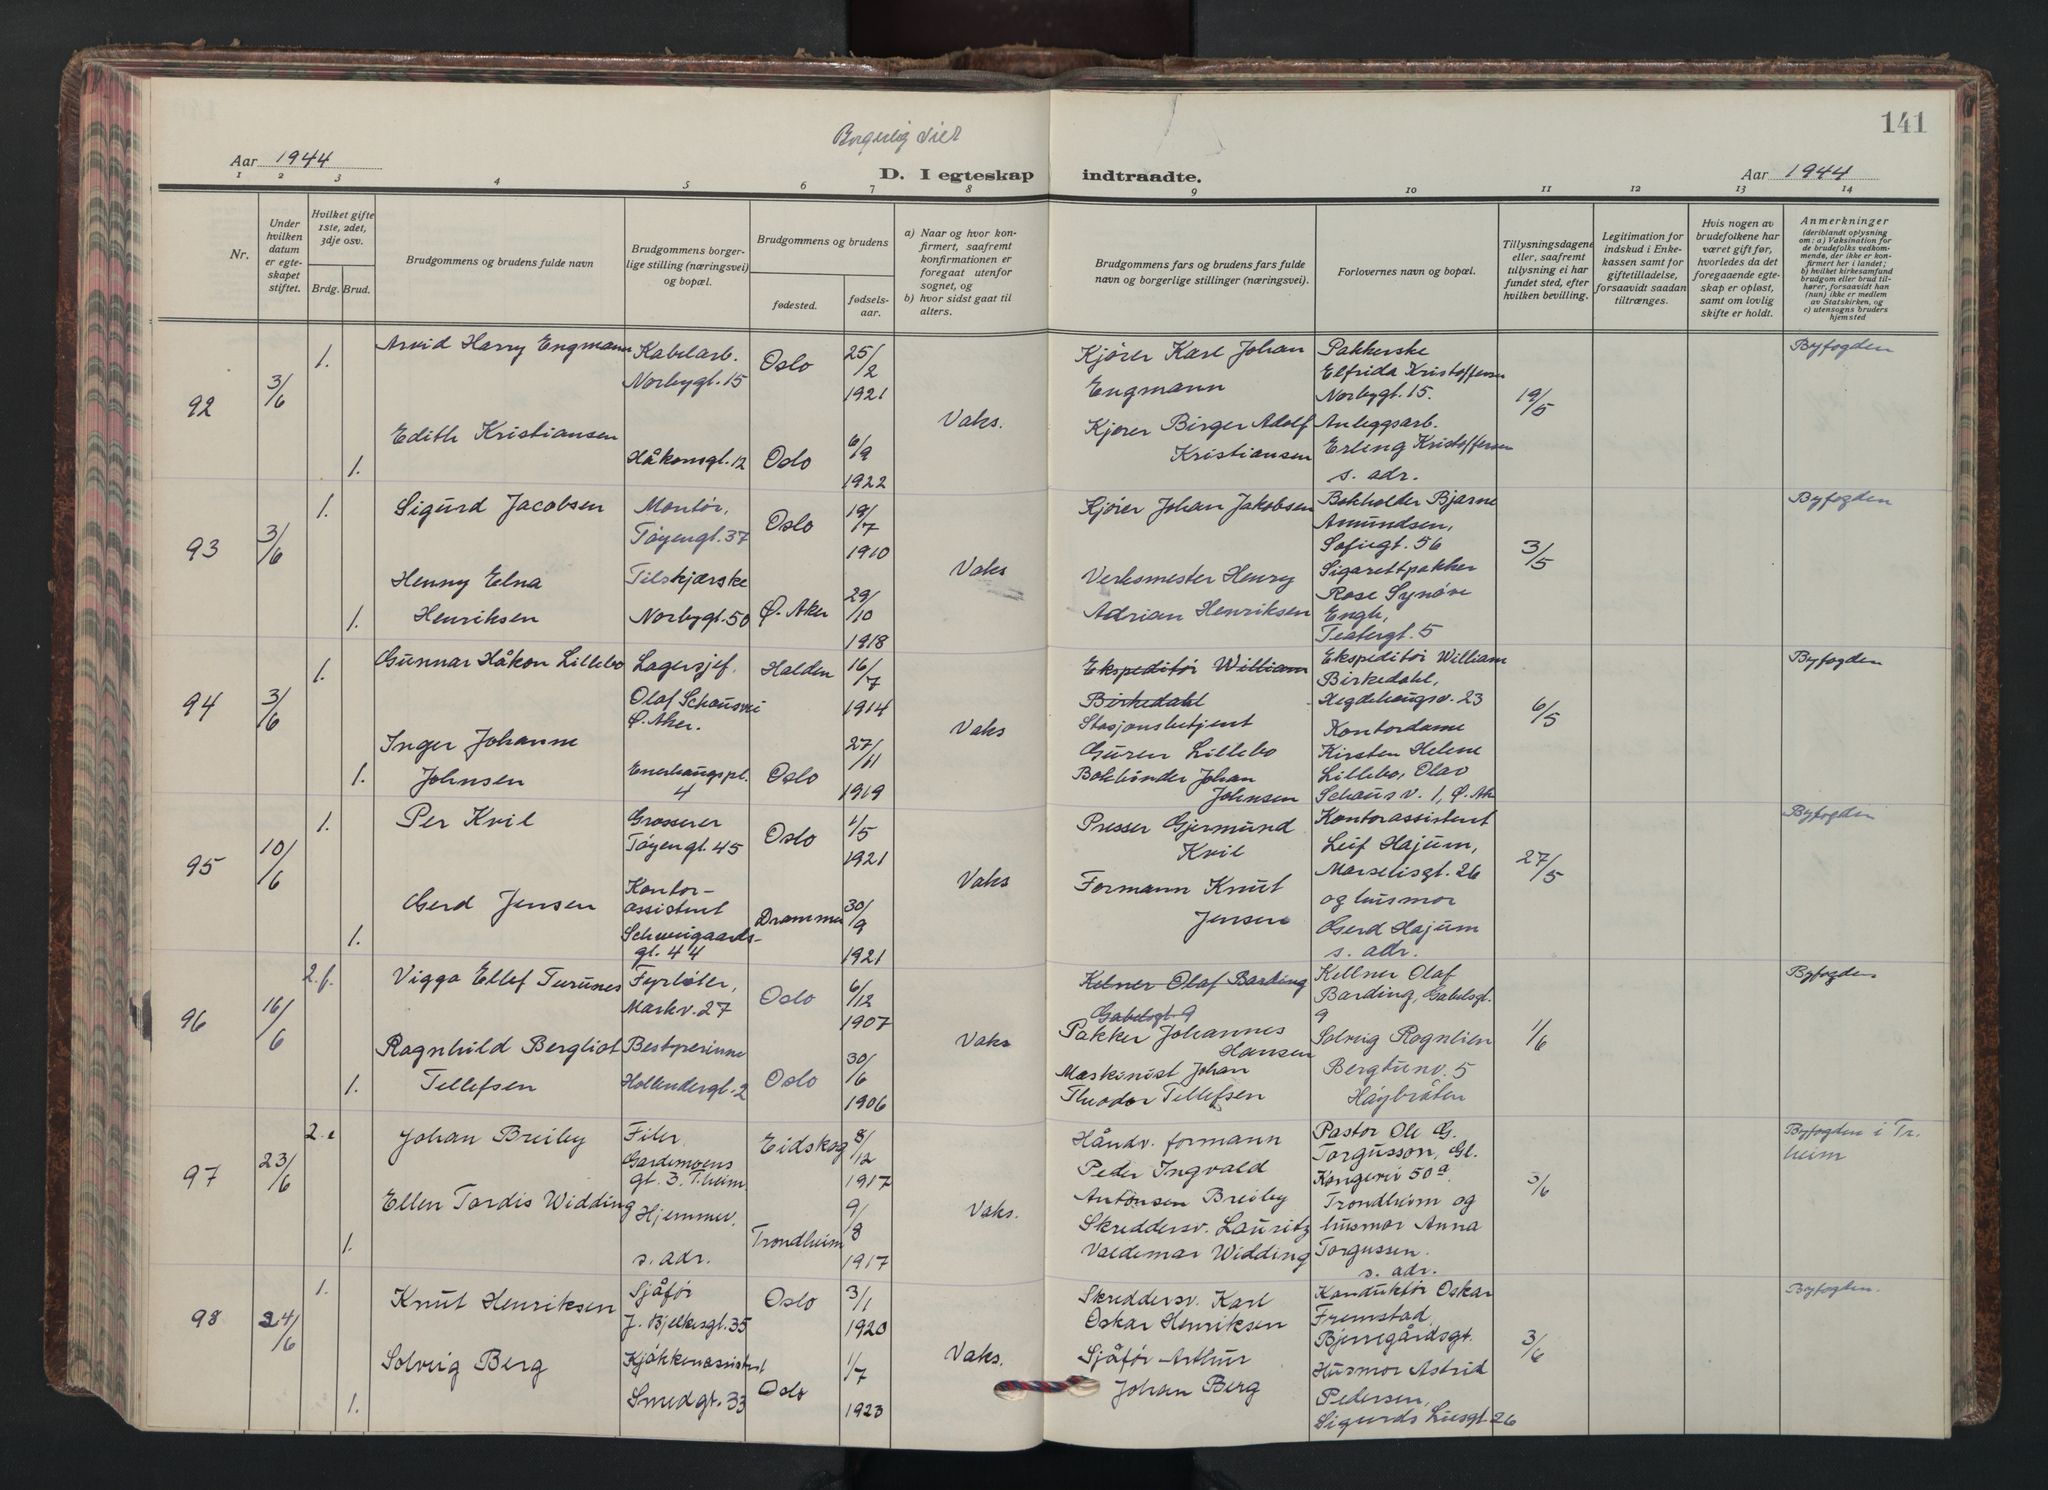 141
Borgerlig viet
Aar 1944
D. I egteskap indtraadte.
Aar 1944
1 2 3 4 5 6 7 8 9 10 11 12 13 14
Nr.
Under hvilken datum er egteskapet stiftet.
Hvilket gifte 1ste, 2det, 3dje osv.
Brdg. Brud.
Brudgommens og brudens fulde navn
Brudgommens borgerlige stilling (næringsvei) og bopæl.
Brudgommens og brudens
fødested.
fødselsaar.
a) Naar og hvor konfirmert, saafremt konfirmationen er foregaat utenfor sognet, og
b) hvor sidst gaat til alters.
Brudgommens fars og brudens fars fulde navn og borgerlige stillinger (næringsvei).
Forlovernes navn og bopæl.
Tillysningsdagene eller, saafremt tullysning ei har fundet sted, efter hvilken bevilling.
Legitimation for indskud i Enkekassen samt for giftetilladelse, forsaavidt saadan tiltrænges.
Hvis nogen av brudefolkene har været gift før, hvorledes da det foregaaende egteskap er opløst, samt om lovlig skifte er holdt.
Anmerkninger
(deriblandt oplysning om: a) Vaksination for de brudefolks vedkommende, der ikke er konfirmert her i landet; b) hvilket kirkesamfund brudgom eller brud tilhører, forsaavidt han (nun) ikke er medlem av Statskirken, og c) utensogns bruders hjemsted
92
3/6
1.
Arvid Harry Engmann
Kabelarb.
Norbygt. 15
Oslo
25/2
1921
Vaks.
Kjører Karl Johan
Engmann
Pakkerske
Elfrida Kristoffersen
Norbygt. 15.
19/5
Byfogden
1.
Edith Kristiansen
Håkonsgt. 12
Oslo
6/9
1922
Kjører Birger Adolf
Kristiansen
Anleggsarb.
Erling Kristoffersen
s. adr.
93
3/6
1.
Sigurd Jacobsen
Montør,
Tøyengt. 37
Oslo
19/7
1910
Vaks
Kjører Johan Jakobsen
Bokholder Bjarne
Amundsen,
Sofiegt. 56
3/5
Byfogden
1.
Henny Elna
Henriksen
Tilskjærske
Norbygt. 50
Ø. Aker
29/10
1918
Verksmester Henry
Adrian Henriksen
Sigarettpakker
Rose Synøve
Engh,
Teatergt. 5
94
3/6
1.
Gunnar Håkon Lillebo
Lagersjef.
Olaf Schousvei
Ø. Aker.
Halden
16/7
1914
Vaks
Ekspeditør William
Birkedahl
Stasjonsbetjent
Guren Lillebo
Ekspeditør William
Birkedahl,
Hegdehaugsv. 23
6/5
Byfogden
1.
Inger Johanne
Johnsen
Enerhaugspl.
4
Oslo
27/11
1919
Bokbinder Johan
Johnsen
Kontordame
Kirsten Helene
Lillebo, Olav
Schous v. 1, Ø. Ak
95
10/6
1.
Per Kvil
Grosserer
Tøyengt. 45
Oslo
1/5
1921
Vaks
Presser Gjermund
Kvil
Kontorassistent
Leif Hajum,
Marselisgt. 26
27/5
Byfogden
1.
Gerd Jensen
Kontor-
assistent
Schweigaards-
gt. 44
Drammen
30/9
1921
Formann Knut
Jensen
og husmor
Gerd Hajum
s. adr.
96
16/6
2. f.
Viggo Ellef Turunes
Fyrbøter,
Markv. 27
Oslo
6/12
1907
Vaks
Kelner Olaf Barding
Gabelsgt. 9
Pakker Johannes
Hansen
Kellner Olaf
Barding, Gabelsgt.
9
1/6
Byfogden
1.
Ragnhild Bergliot
Tellefsen
Bestyrerinne
Hollendergt. 2
Oslo
30/6
1906
Maskinist Johan
Theodor Tellefsen
Solveig Rognlien
Bergtunv. 5
Høybråten
97
23/6
2.
Johan Breiby
Filer
Gardemoens
gt. 3. T.heim
Eidskog
8/12
1917
Vaks.
Håndv. formann
Peder Ingvald
Antonsen Breiby
Pastor Ole G.
Torgusson, Gl.
Kongevei 50a
3/6
Byfogden i Tr.
heim
1.
Ellen Tordis Widding
Hjemmev.
s. adr.
Trondheim
9/8
1917
Skreddersv. Lauritz
Valdemar Widding
Trondheim og
husmor Anna
Torgussen.
s. adr.
98
24/6
1.
Knut Henriksen
Sjåfør
J. Bjelkesgt. 35
Oslo
3/1
1920
Vaks.
Skreddersv. Karl
Oskar Henriksen
Konduktør Oskar
Fremstad,
Bjerregårdsgt.
3/6
Byfogden.
1.
Solveig Berg
Kjøkkenassistent
Smedgt. 33
Oslo
1/7
1923
Sjåfør Arthur
Johan Berg
Husmor Astrid
Pedersen,
Sigurds Liesgt 26